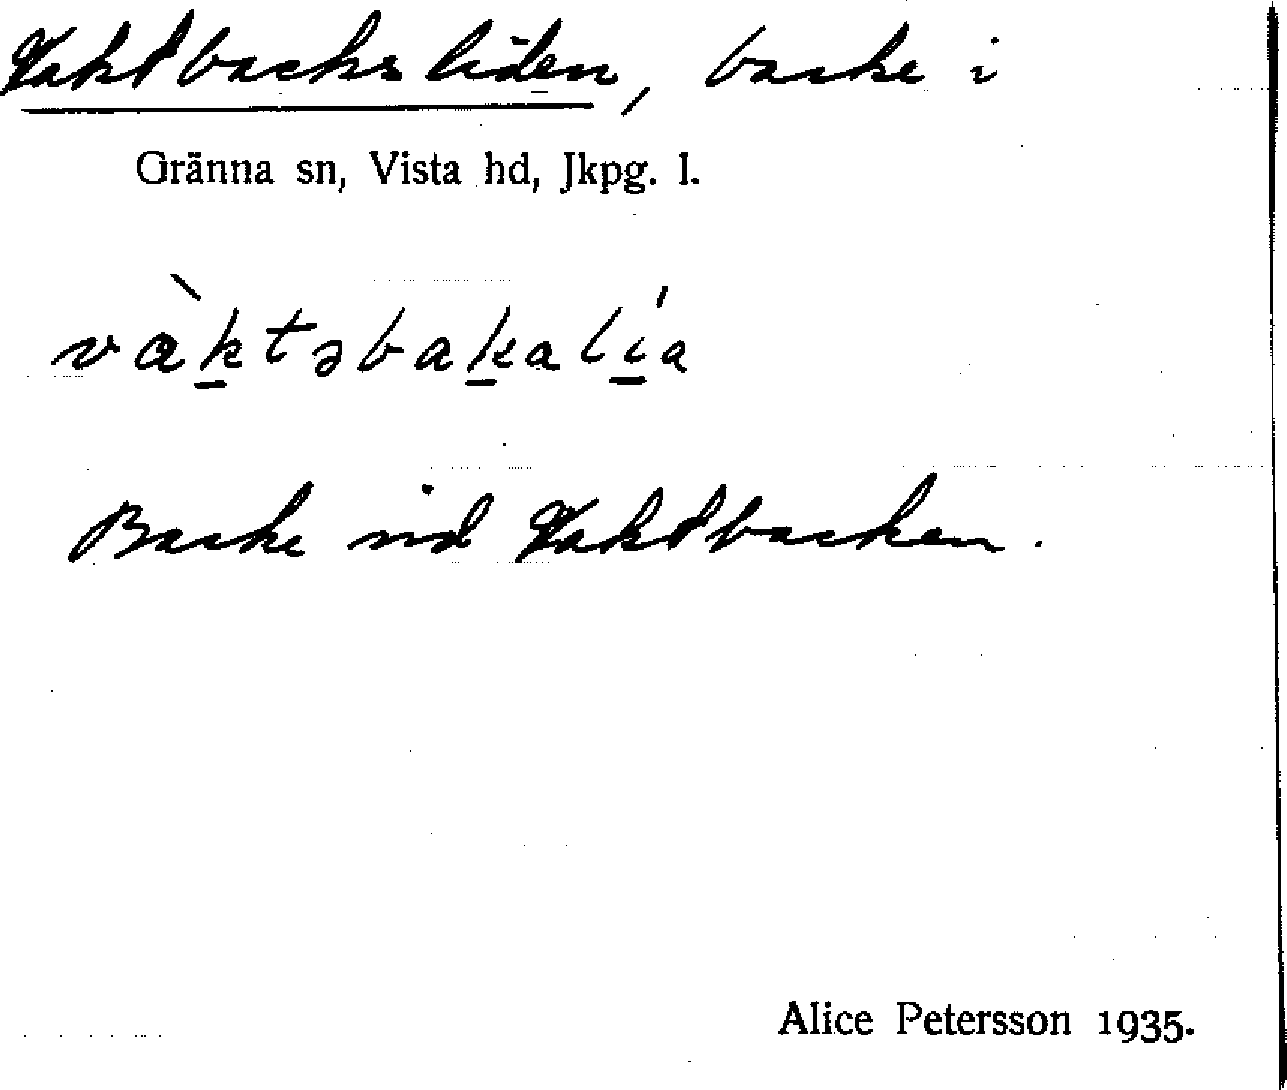 Vaktbacksliden, backe i
Gränna sn, Vista hd, Jkpg. l.
vàktəbakalía
Backe vid Vaktbacken.
Alice Petersson 1935.